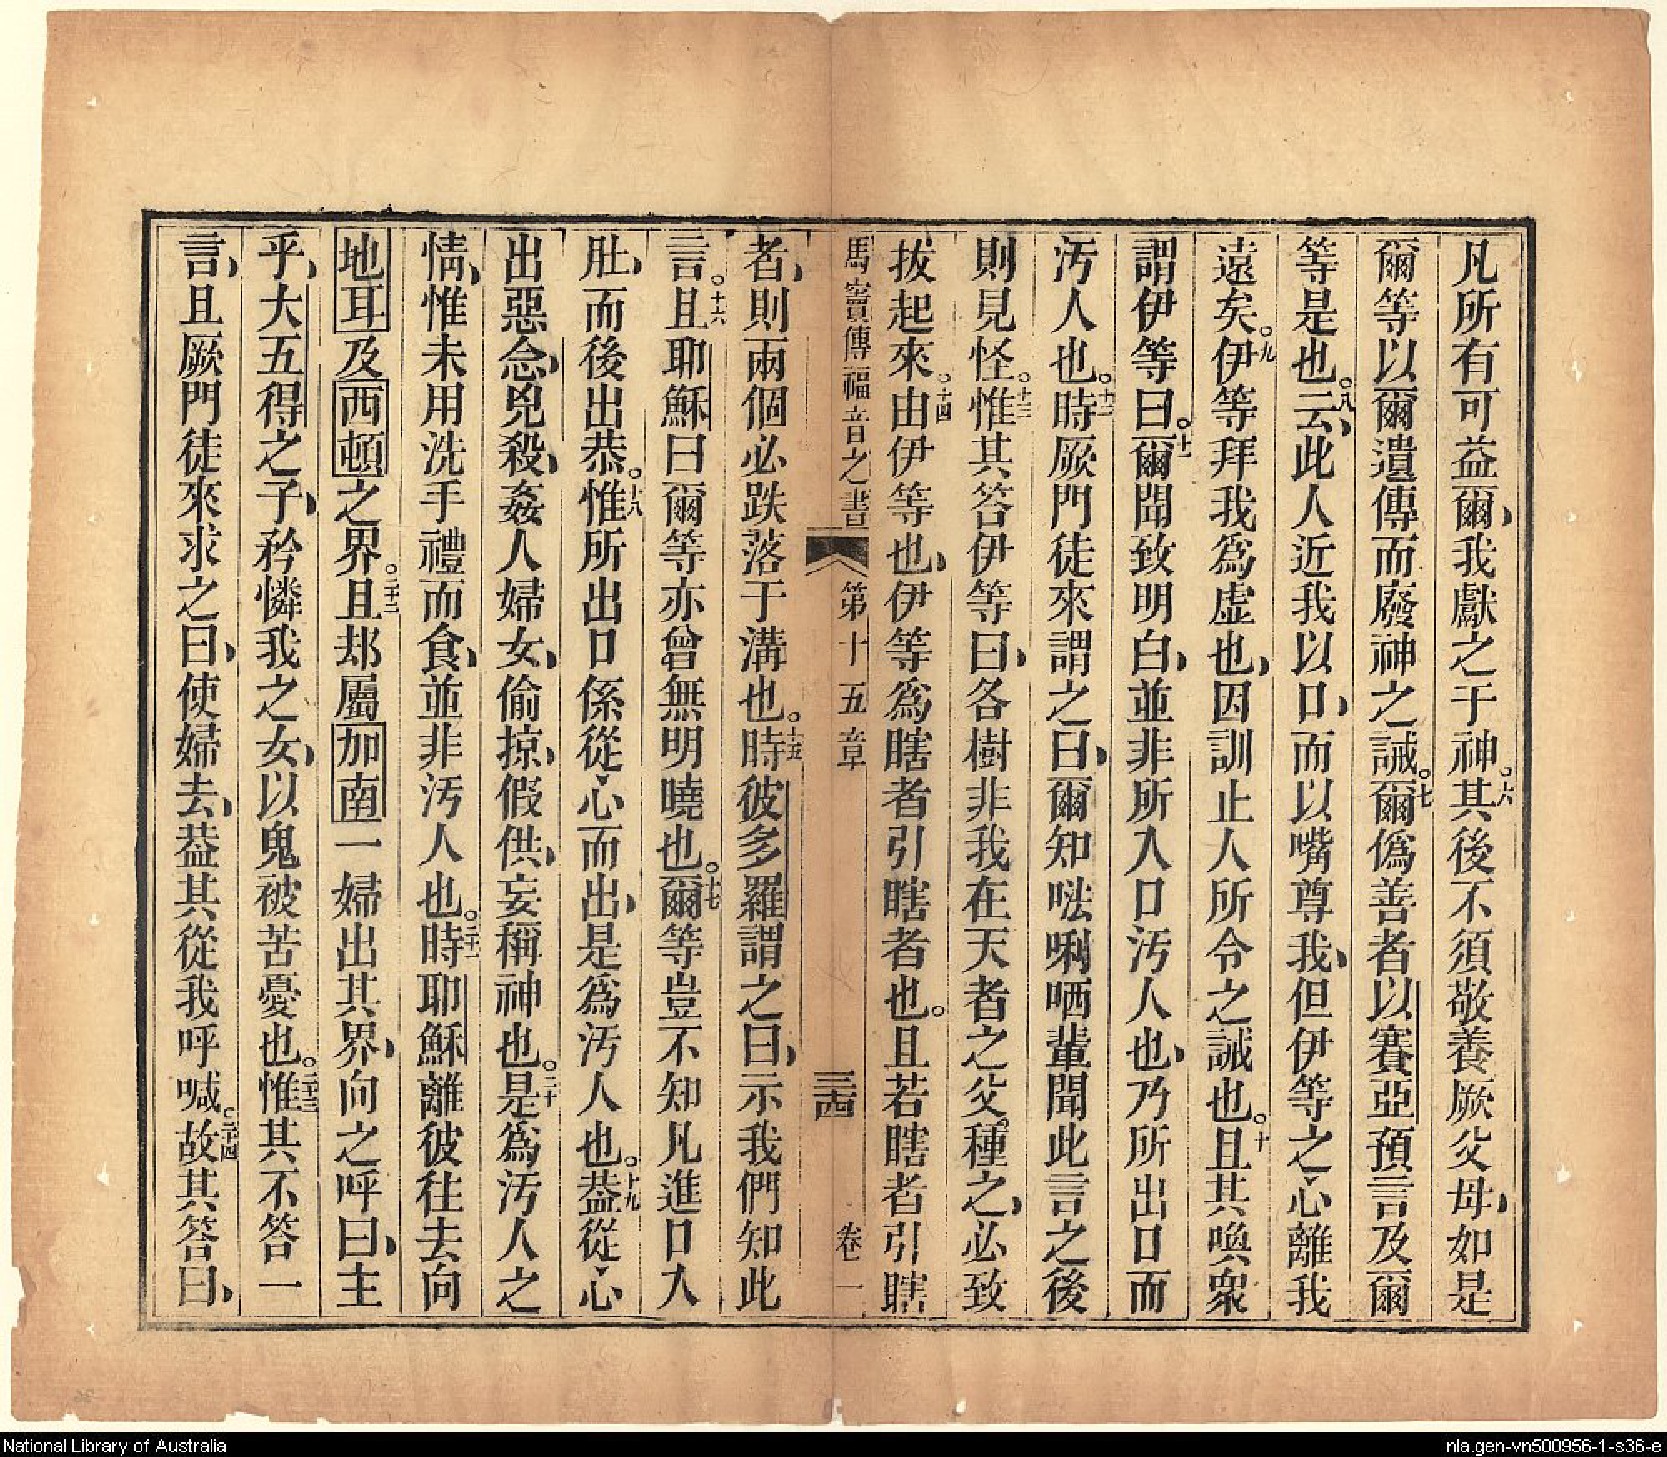 凡所有可益爾我獻之于神。六其後不須敬養厥父母如是
爾等以爾遺傳而廢神之誡。七爾僞善者以賽亞預言及爾
等是也。八云此人近我以口而以嘴尊我但伊等之心離我
遠矣。九伊等拜我爲虛也因訓止人所令之誡也。十且其喚衆
謂伊等曰。十一爾聞致明白並非所入口汚人也乃所出口而
汚人也。十二時厥門徒來謂之曰爾知𠵽唎哂輩聞此言之後
則見怪。十三惟其答伊等曰各樹非我在天者之父種之必致
拔起來。十四由伊等也伊等爲瞎者引瞎者也。且若瞎者引瞎
馬竇傳福音之書 第十五章 三四 卷一
者則兩個必跌落于溝也。十五時彼多羅謂之曰示我們知此
言。十六且耶穌曰爾等亦曾無明曉也。十七爾等豈不知凡進口入
肚而後出恭。十八惟所出口係從心而出是爲汚人也。十九蓋從心
出惡念兇殺姦人婦女偷掠假供妄稱神也。二十是爲汚人之
情惟未用洗手禮而食並非汚人也。二十一時耶穌離彼往去向
地耳及西頓之界。二十二且郄屬加南一婦出其界向之呼曰主
乎大五得之子矜憐我之女以鬼被苦憂也。二十三惟其不答一
言且厥門徒來求之曰使婦去葢其從我呼喊。二十四故其答曰
National Library of Australia
nla.gen-vn500956-1-s36-e